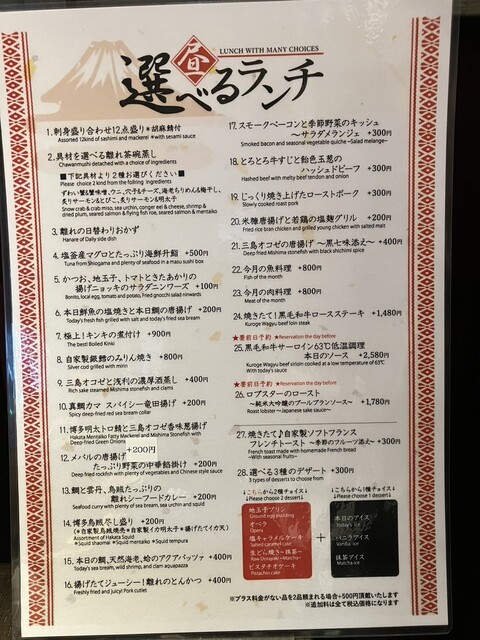 LUNCH WITH MANY CHOICES
昼
選べるランチ
1. 刺身盛り合わせ12点盛り＊胡麻鯖付
Assorted 12kind of sashimi and mackerel ＊with sesami sauce
2. 具材を選べる離れ茶碗蒸し
Chawanmushi detached with a choice of ingredients
■下記具材より２種お選びください■
Please choice 2 kind from the following ingredients
Snow crab & crab miso, sea urchin, conger eel & cheese, shrimp &
dried plum, seared salmon & flying fish roe, seared salmon & mentaiko
3. 離れの日替わりおかず
Hanare of Daily side dish
4. 塩釜産マグロとたっぷり海鮮升鮨 +500円
Tuna from Shiogama and plenty of seafood in a masu sushi box
5. かつお、地玉子、トマトときたあかりの
揚げニョッキのサラダニソワーズ +100円
Bonito, local egg, tomato and potato, Fried gnocchi salad ninwards
6. 本日鮮魚の塩焼きと本日鯛の唐揚げ +200円
Today's fresh fish grilled with salt and today's fried sea bream
7. 極上！キンキの煮付け +900円
The best Boiled Kinki
8. 自家製銀鱈のみりん焼き +800円
Silver cod grilled with mirin
9. 三島オコゼと浅利の濃厚酒蒸し +400円
Rich sake steamed Mishima stonefish and clams
10. 真鯛カマ スパイシー竜田揚げ +200円
Spicy deep-fried red sea bream collar
11. 博多明太トロ鯖と三島オコゼ香味葱揚げ
Hakata Mentaiko Fatty Mackerel and Mishima Stonefish with
Deep-Fried Green Onions
+200円
12. メバルの唐揚げ
たっぷり野菜の中華餡掛け +200円
Deep fried rockfish with plenty of vegetables and Chinese style sauce
13. 鯛と雲丹、烏賊たっぷりの
離れシーフードカレー +200円
Seafood curry with plenty of sea bream, sea urchin and squid
14. 博多烏賊尽し盛り +200円
(＊自家製烏賊焼売＊自家製イカ明太子＊揚げたてイカ天)
Assortment of Hakata Squid
＊Squid shaomai ＊Squid mentaiko ＊Squid tempura
15. 本日の鯛、天然海老、蛤のアクアパッツァ +400円
Today's sea bream, wild shrimp, and clam aquapazza
16. 揚げたてジューシー！離れのとんかつ +400円
Freshly fried and juicy! Pork cutlet
17. スモークベーコンと季節野菜のキッシュ
～サラダメランジェ +300円
Smoked bacon and seasonal vegetable quiche ~Salad melange~
18. とろとろ牛すじと飴色玉葱の
ハッシュドビーフ +300円
Hashed beef with melty beef tendon and onion
19. じっくり焼き上げたローストポーク +300円
Slowly cooked roast pork
20. 米糠唐揚げと若鶏の塩麹グリル +200円
Fried rice bran chicken and grilled young chicken with salted malt
21. 三島オコゼの唐揚げ ～黒七味添え～ +400円
Deep fried Mishima stonefish with black shichimi spice
22. 今月の魚料理 +800円
Fish of the month
23. 今月の肉料理 +800円
Meat of the month
24. 焼きたて！黒毛和牛ロースステーキ +1,480円
Kuroge Wagyu beef loin steak
★要前日予約 ★Reservation the day before
25. 黒毛和牛サーロイン63℃低温調理
本日のソース +2,580円
Kuroge Wagyu beef sirloin cooked at a low temperature of 63℃
With today's sauce
★要前日予約 ★Reservation the day before
26. ロブスターのロースト
～純米大吟醸のブールブランソース～ +1,780円
Roast lobster ~Japanese sake sauce~
27. 焼きたて♪自家製ソフトフランス
フレンチトースト ～季節のフルーツ添え～ +300円
French toast made with homemade French bread
~With seasonal fruit~
28. 選べる３種のデザート +300円
3 types of desserts to choose from
↓こちらから2種チョイス↓
↓Please choose 2 dessert↓
地玉子プリン
Ground egg pudding
オペラ
Opera
塩キャラメルケーキ
Salted caramel cake
生どら焼き～抹茶～
Raw Dorayaki ~Matcha~
ピスタチオケーキ
Pistachio cake
+
↓こちらから1種チョイス↓
↓Please choose 1 dessert↓
本日のアイス
Today's ice
バニラアイス
Vanilla ice
抹茶アイス
Matcha ice
※プラス料金がない品を2品頼まれる場合+500円頂戴いたします
※追加料は全て税込価格になります